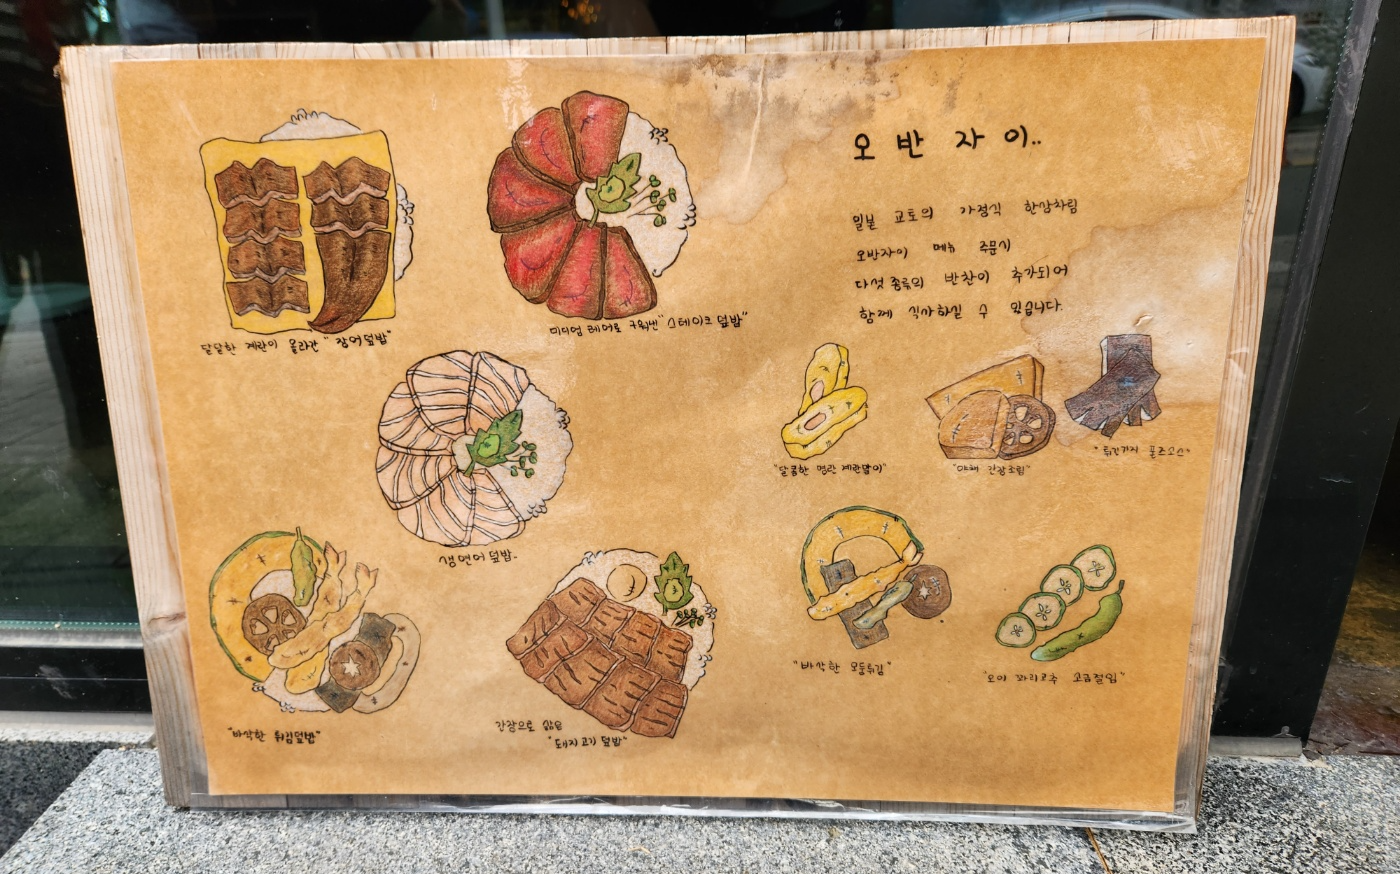 달달한 계란이 올라간 "장어덮밥"
미디엄 레어로 구워낸 "스테이크 덮밥"
생연어 덮밥.
"바삭한 튀김덮밥"
간장으로 삶은
"돼지고기 덮밥"
오반자이..
일본 교토의 가정식 한상차림
오반자이 메뉴 주문시
다섯 종류의 반찬이 추가되어
함께 식사하실 수 있습니다.
"달콤한 명란 계란말이"
"야채 간장조림"
"튀긴가지 폰즈소스"
"바삭한 모둠튀김"
"오이 꽈리고추 소금절임"